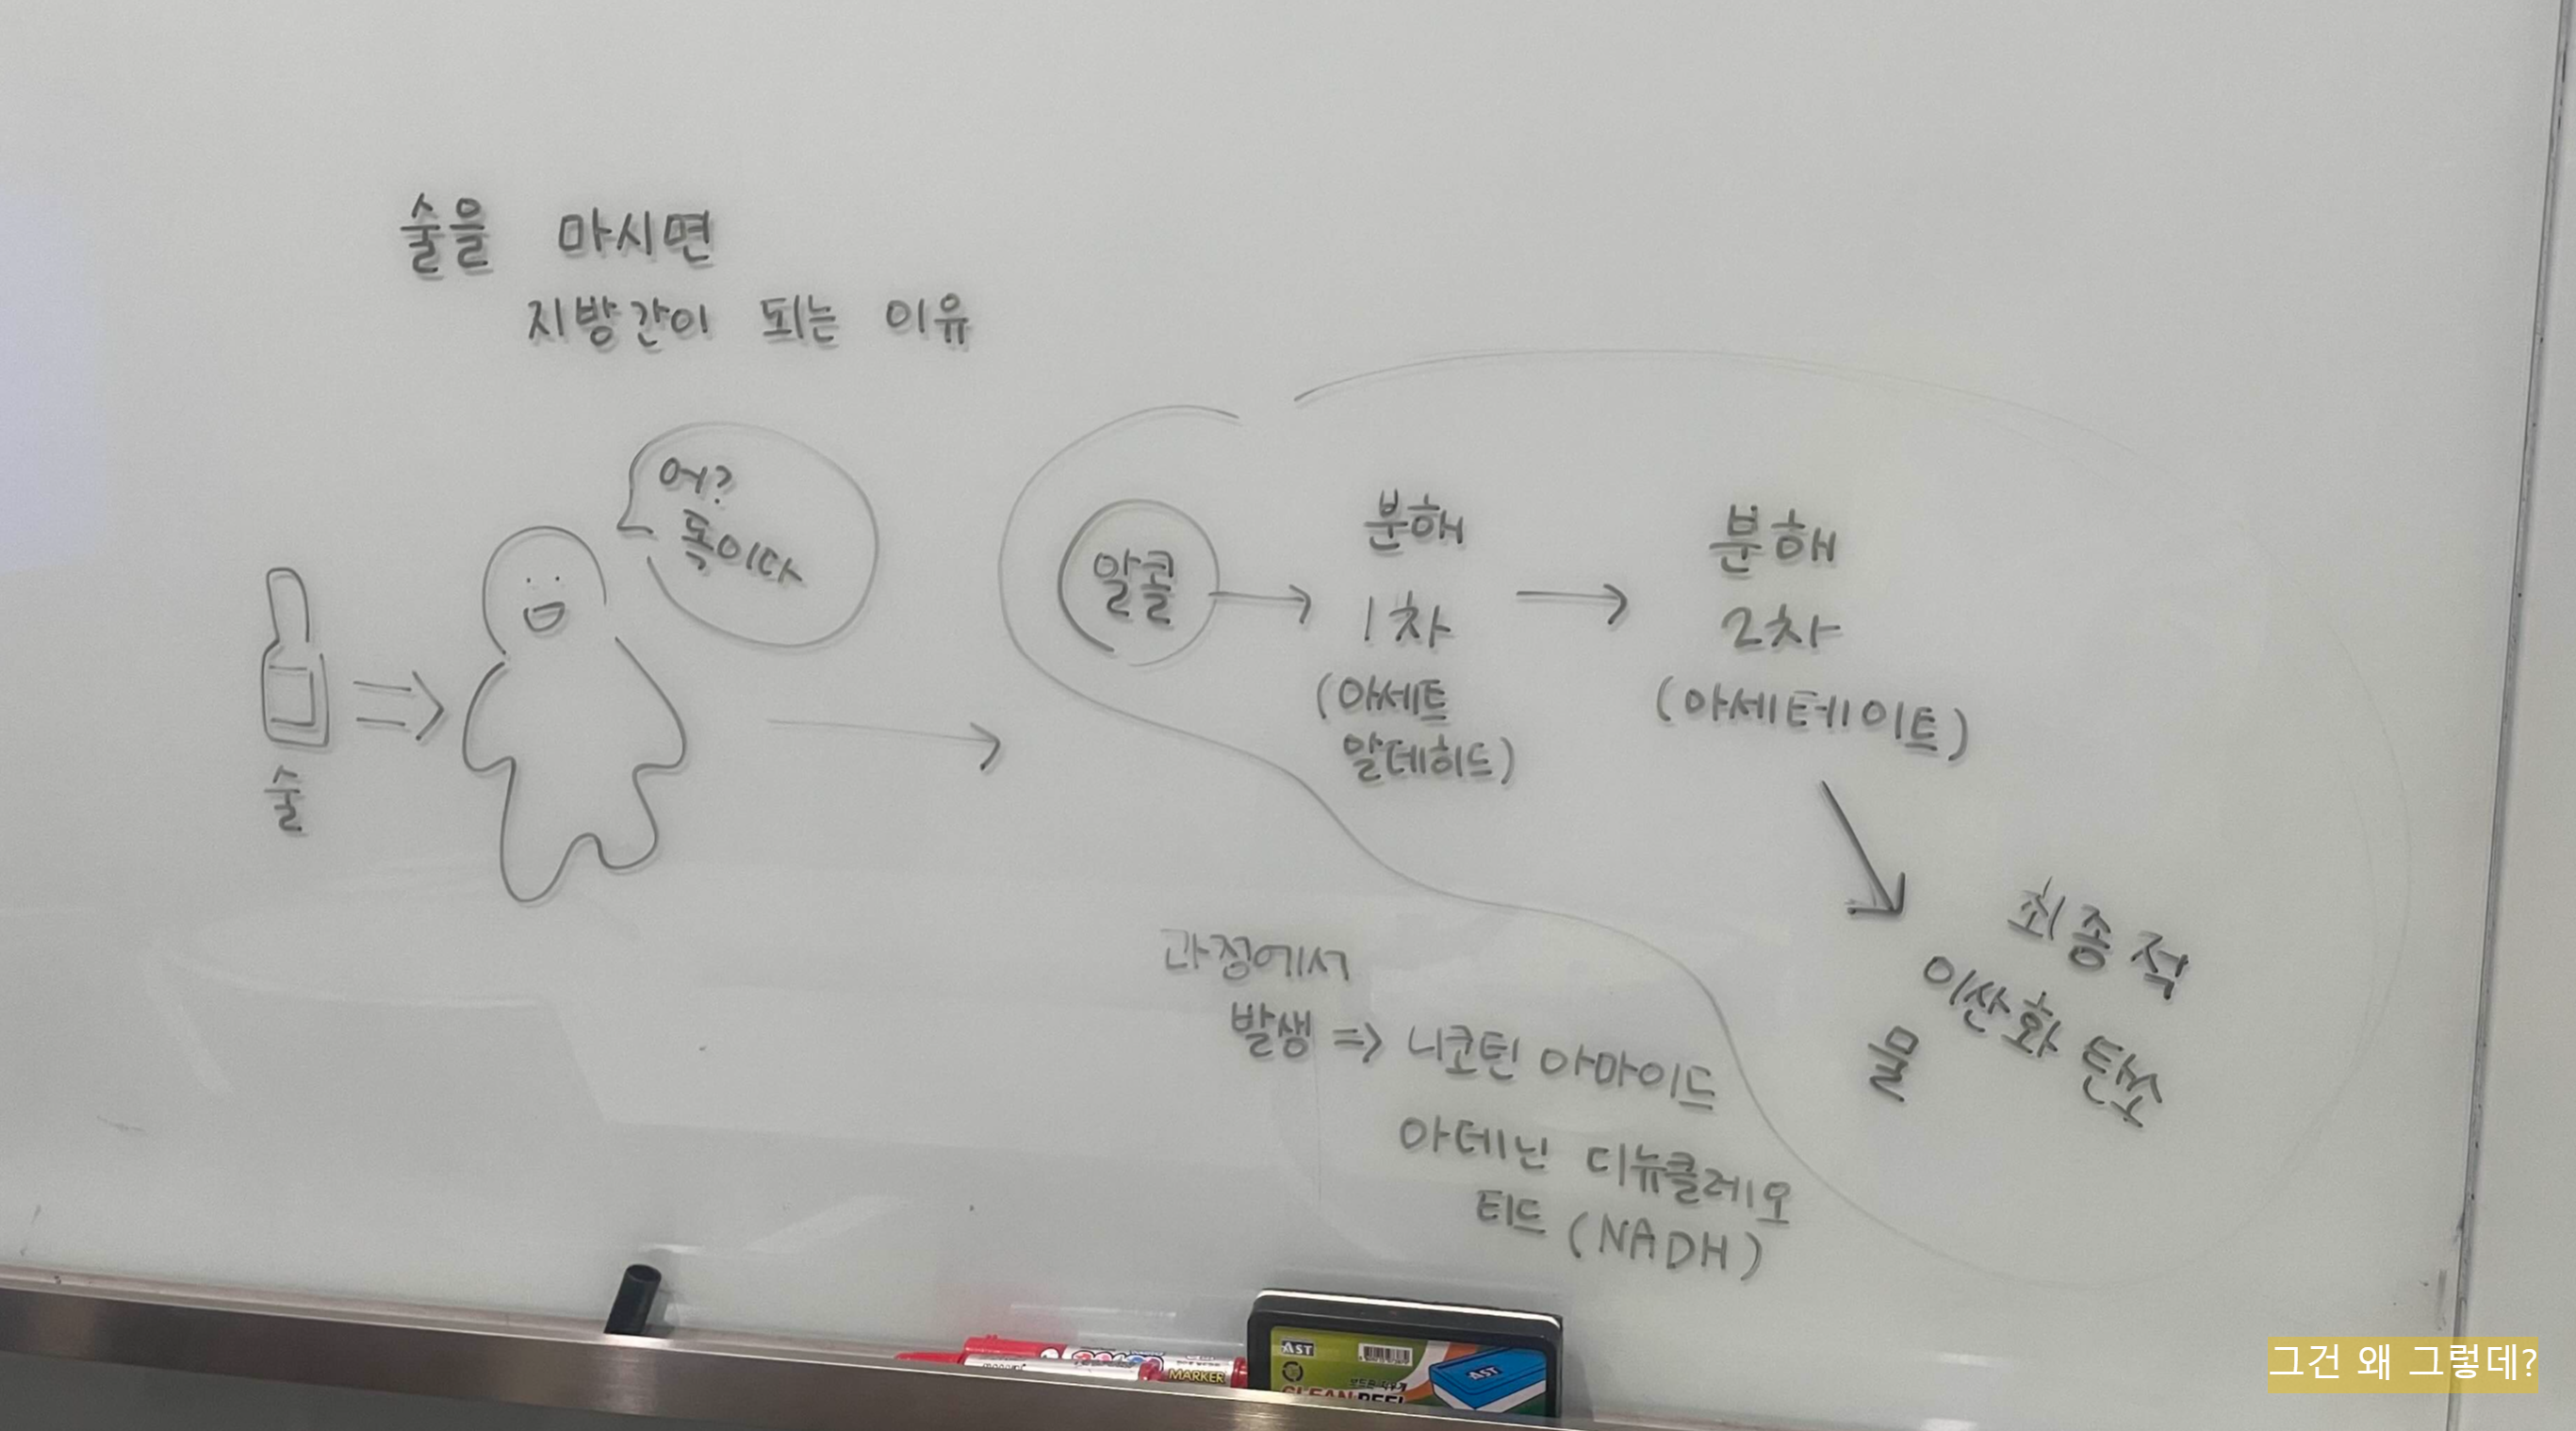 술을 마시면
지방간이 되는 이유
어?
독이다
술
알콜
분해
1차
(아세트
알데히드)
분해
2차
(아세테이트)
최종적
이산화 탄소
물
과정에서
발생 => 니코틴 아마이드
아데닌 디뉴클레오
티드 (NADH)
MARKER
AST
AST
그건 왜 그렇데?